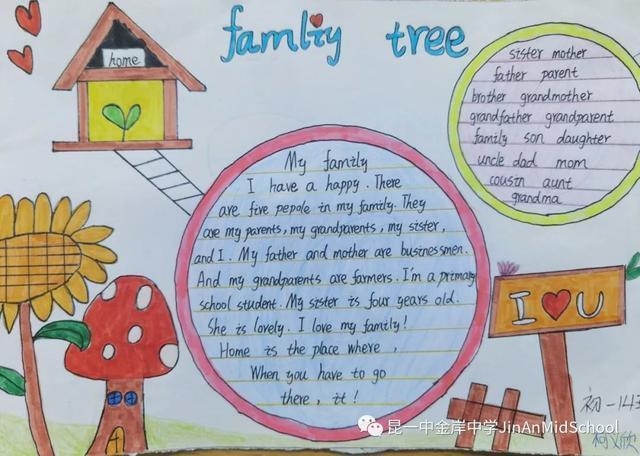 family tree
home
sister mother
father parent
brother grandmother
grandfather grandparent
family son daughter
uncle dad mom
cousin aunt
grandma
My family
I have a happy. There
are five pepole in my family. They
are my parents, my grandparents, my sister,
and I. My father and mother are businessmen.
And my grandparents are farmers. I'm a primary
school student. My sister is four years old.
She is lovely. I love my family!
Home is the place where,
When you have to go
there, it!
I ❤ U
初一143
昆一中金岸中学JinAnMidSchool